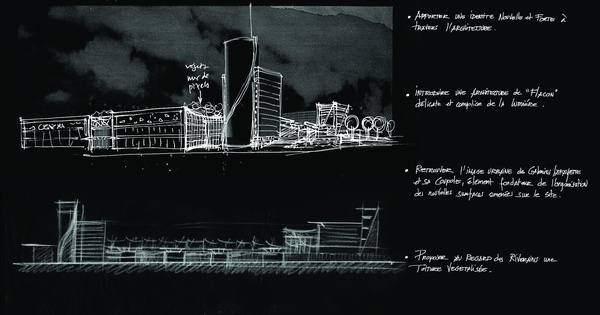 végét.
mur de
pixels
• Apporter une identité Nouvelle et Forte à
travers l'architecture.
• Introduire une Architecture de "Flacon"
délicate et complice de la lumière.
• Retrouver l'image urbaine de Galeries Lafayette
et sa Coupole, élément fondateur de l'organisation
des nouvelles surfaces amenées sur le site.
• Proposer au Regard des Riverains une
Toiture Végétalisée.